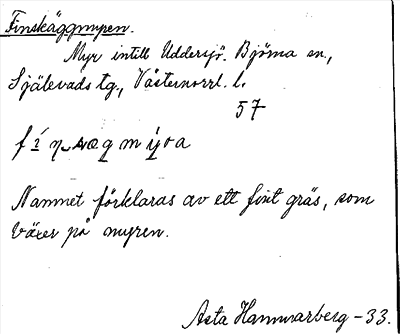 Finskäggmyren.
Myr intill Uddersjö. Björna sn,
Själevads tg., Västernorrl. l.
57
Namnet förklaras av ett fint gräs, som
växer på myren.
Asta Hammarberg - 33.